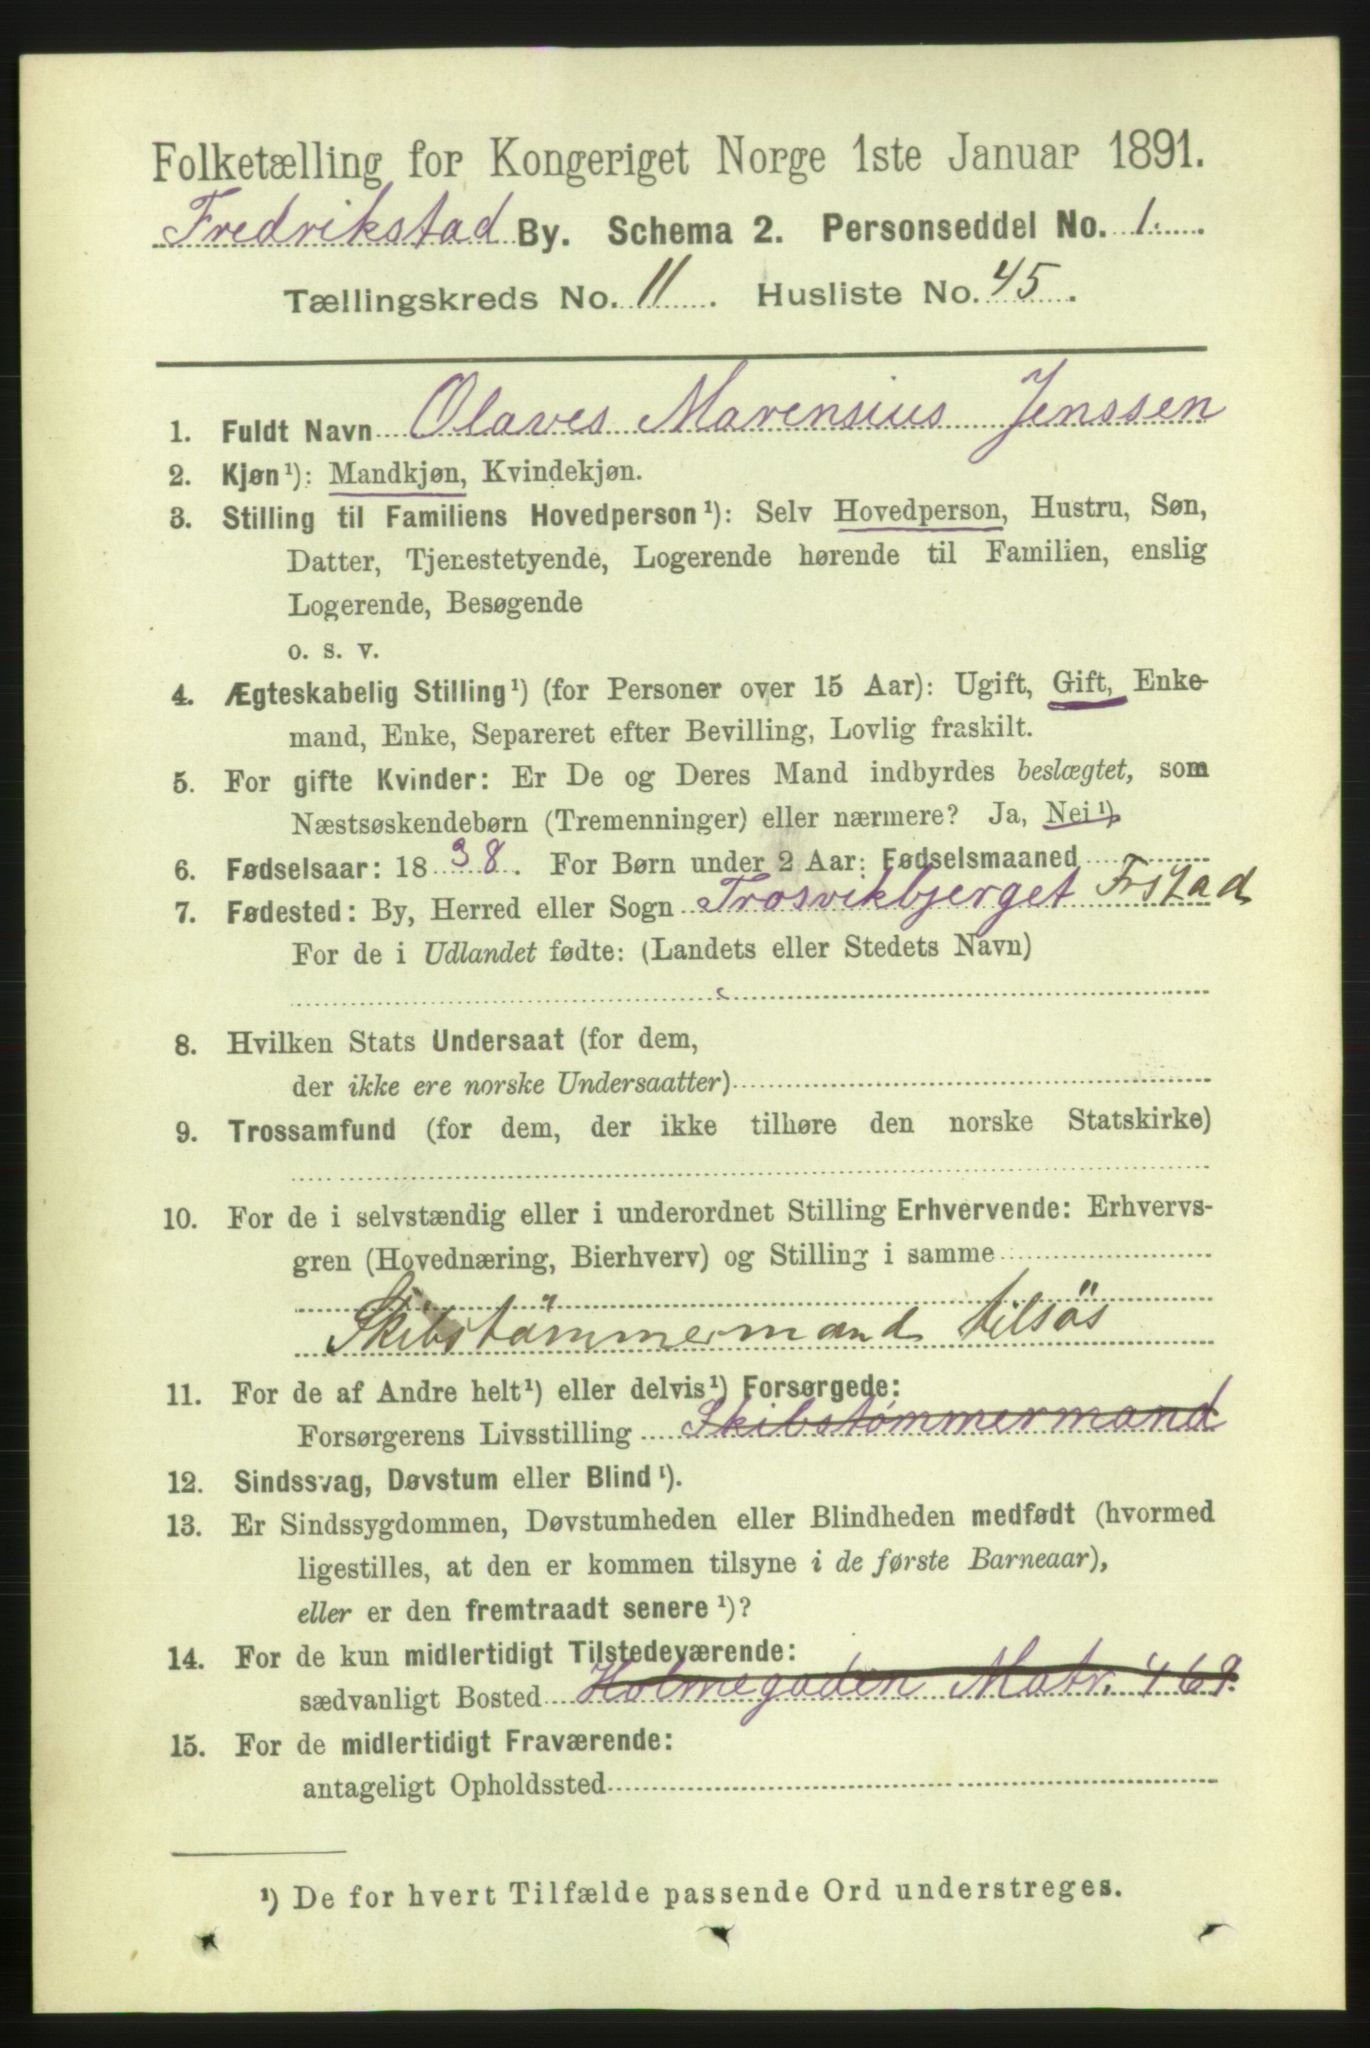 Folketælling for Kongeriget Norge 1ste Januar 1891.
Fredrikstad By. Schema 2. Personseddel No. 1.
Tællingskreds No. 11. Husliste No. 45.
1. Fuldt Navn Olaves Marensius Jenssen
2. Kjøn¹): Mandkjøn, Kvindekjøn.
3. Stilling til Familiens Hovedperson¹): Selv Hovedperson, Hustru, Søn,
Datter, Tjenestetyende, Logerende hørende til Familien, enslig
Logerende, Besøgende
o. s. v.
4. Ægteskabelig Stilling¹) (for Personer over 15 Aar): Ugift, Gift, Enke-
mand, Enke, Separeret efter Bevilling, Lovlig fraskilt.
5. For gifte Kvinder: Er De og Deres Mand indbyrdes beslægtet, som
Næstsøskendebørn (Tremenninger) eller nærmere? Ja, Nei¹)
6. Fødselsaar: 1838. For Børn under 2 Aar: Fødselsmaaned
7. Fødested: By, Herred eller Sogn Trosvikbjerget Frstad
For de i Udlandet fødte: (Landets eller Stedets Navn)
8. Hvilken Stats Undersaat (for dem,
der ikke ere norske Undersaatter)
9. Trossamfund (for dem, der ikke tilhøre den norske Statskirke)
10. For de i selvstændig eller i underordnet Stilling Erhvervende: Erhvervs-
gren (Hovednæring, Bierhverv) og Stilling i samme
Skibstömmermand tilsös
11. For de af Andre helt¹) eller delvis¹) Forsørgede:
Forsørgerens Livsstilling Skibstømmermand
12. Sindssvag, Døvstum eller Blind¹).
13. Er Sindssygdommen, Døvstumheden eller Blindheden medfødt (hvormed
ligestilles, at den er kommen tilsyne i de første Barneaar),
eller er den fremtraadt senere¹)?
14. For de kun midlertidigt Tilstedeværende:
sædvanligt Bosted Holmegaden Matr. 469.
15. For de midlertidigt Fraværende:
antageligt Opholdssted
¹) De for hvert Tilfælde passende Ord understreges.